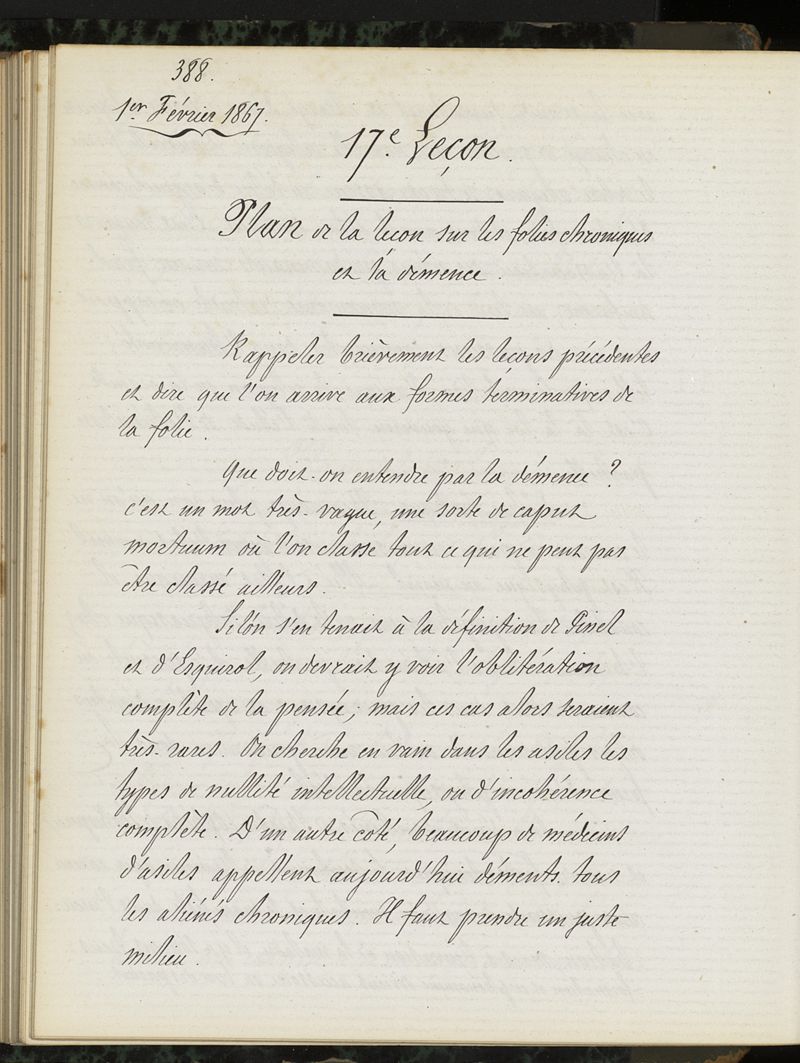 388.
1er Février 1867.
17e. Leçon.
Plan de la leçon sur les folies chroniques
et la démence.
Rappeler brièvement les leçons précédentes
et dire que l'on arrive aux formes terminatives de
la folie.
Que doit-on entendre par la démence ?
c'est un mot très-vague, une sorte de caput
mortuum où l'on classe tout ce qui ne peut pas
être classé ailleurs.
Si l'on s'en tenait à la définition de Pinel
et d'Esquirol, on devrait y voir l'oblitération
complète de la pensée; mais ces cas alors seraient
très-rares. On cherche en vain dans les asiles les
types de nullité intellectuelle, ou d'incohérence
complète. D'un autre côté, beaucoup de médecins
d'asiles appellent aujourd'hui déments tous
les aliénés chroniques. Il faut prendre un juste
milieu.